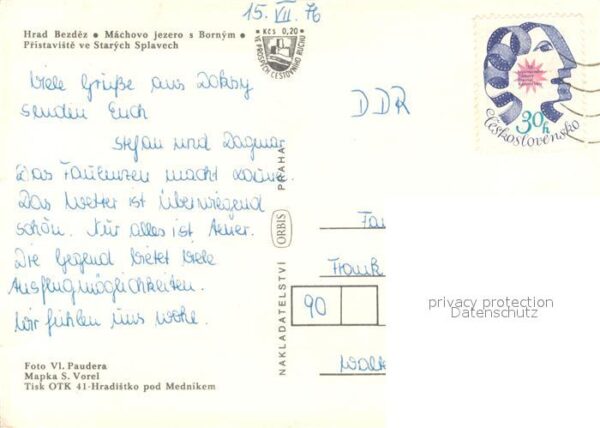 15. VII. 76
Hrad Bezděz • Máchovo jezero s Borným •
Přístaviště ve Starých Splavech
Kčs 0,20
VE PROSPĚCH CESTOVNÍHO RUCHU
30h
Československo
Viele Grüße aus Doksy
senden Euch
Stefan und Dagmar
Das Faulenzen macht Laune.
Das Wetter ist überwiegend
schön. Nur alles ist teuer.
Die Gegend bietet viele
Ausflugmöglichkeiten.
Wir fühlen uns wohl.
DDR
Fa
Frank
90
NAKLADATELSTVÍ ORBIS PRAHA
privacy protection
Datenschutz
Foto Vl. Paudera
Mapka S. Vorel
Tisk OTK 41-Hradištko pod Medníkem